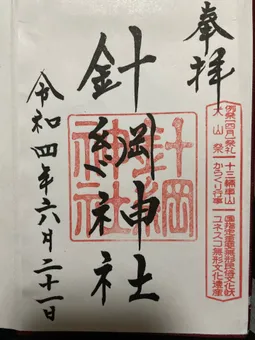 奉拝
例祭(四月)祭礼 十三輛車山 国指定重要無形民俗文化財
犬山祭 からくり行事 ユネスコ無形文化遺産
針綱神社
針綱
神社
令和四年六月二十一日